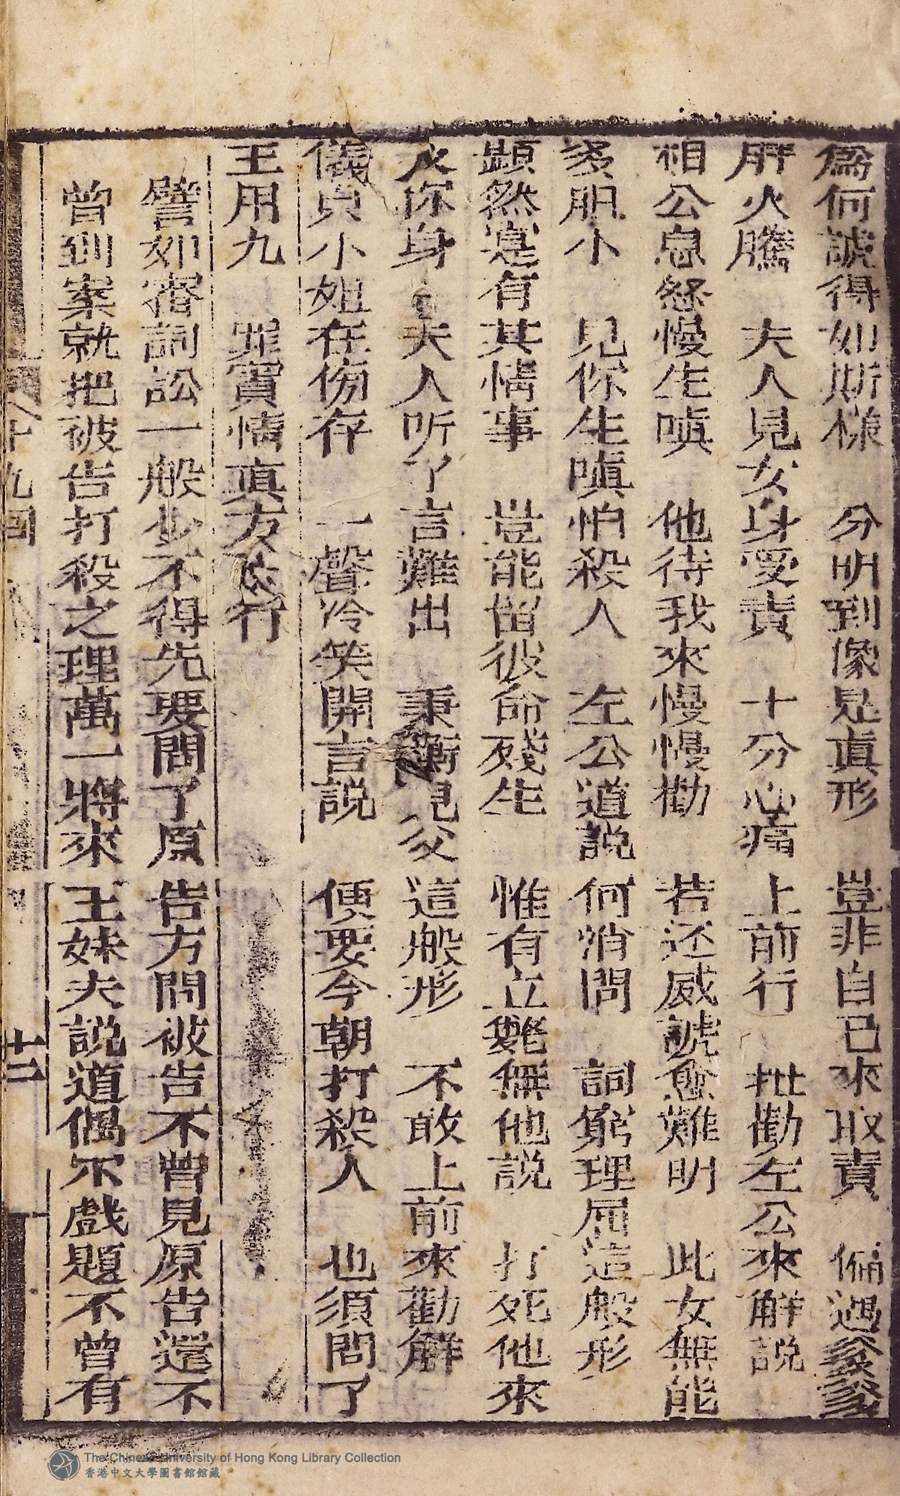 為何諕得如斯樣　分明到像是真形　豈非自己來取責　偏遇爹爹
肝火騰　夫人見女身受責　十分心痛上前行　扯勸左公來解說
相公息怒慢生嗔　他待我來慢慢勸　若还威諕愈難明　此女無能
多胆小　見你生嗔怕殺人　左公道說何消問　詞窮理屈這般形
顯然寔有其情事　豈能留彼命殘生　惟有立斃無他說　打死他來
你身　夫人听了言難出　秉衡見父這般形　不敢上前來勸解
儀貞小姐在傍存　一聲冷笑開言說　便要今朝打殺人　也須問了
王用九　罪實情真方行
譬如審詞訟一般少不得先要問了原告方問被告不曾見原告還不
曾到案就把被告打殺之理萬一將來王妹夫說道偶尔戲題不曾有
十九回
十二
The Chinese University of Hong Kong Library Collection
香港中文大學圖書館館藏